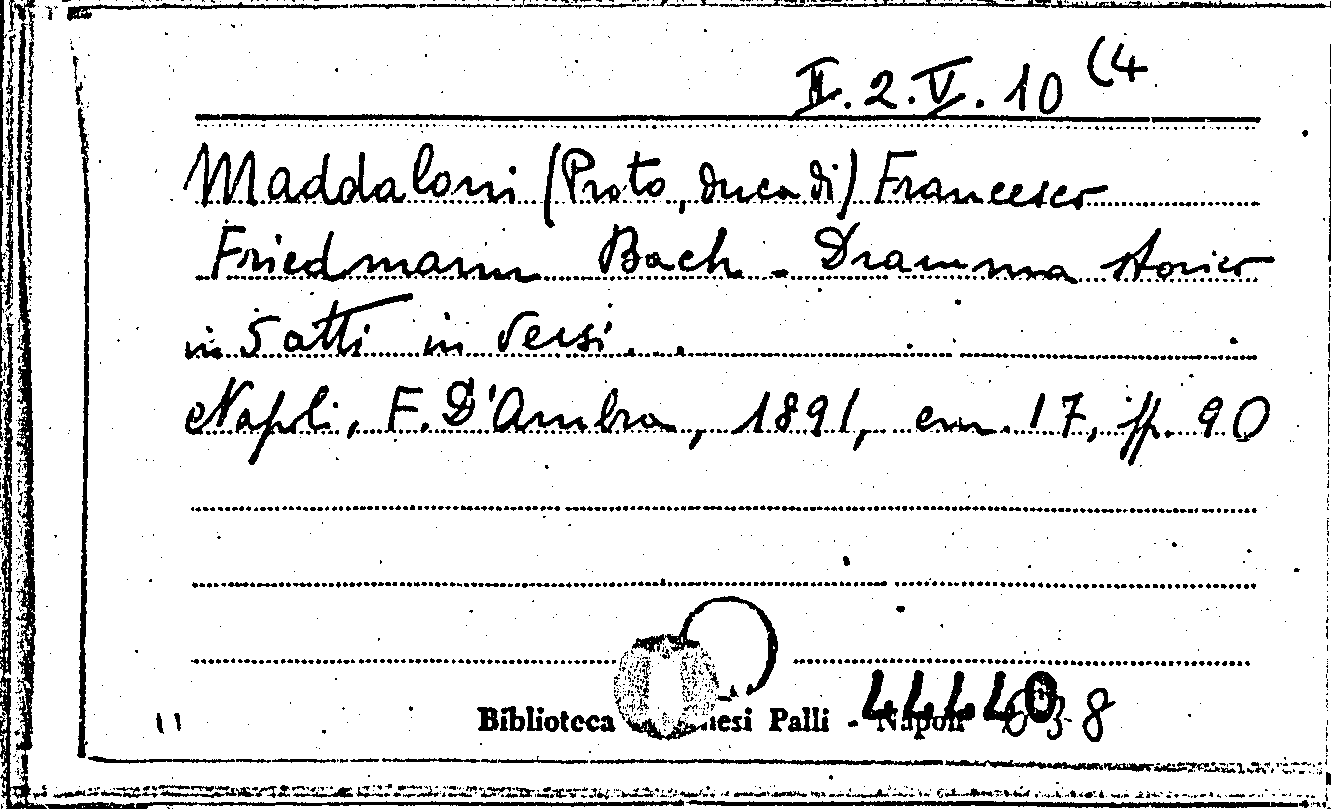 II.2.V.10 (4
Maddaloni (Proto, duca di) Francesco
Friedmann Bach - Dramma storico
in 5 atti in versi..
Napoli, F. D'Ambra, 1891, cm. 17, pp. 90
11 Biblioteca nesi Palli - Napoli 44440 8